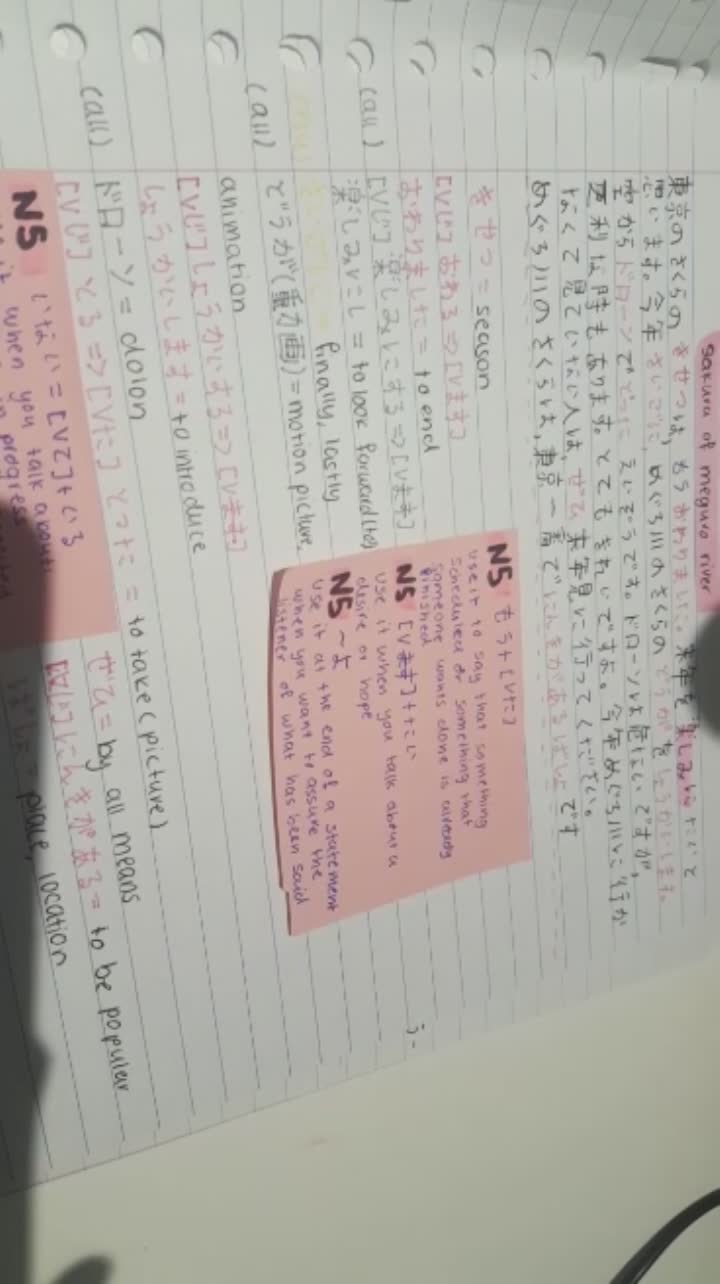 sakura of meguro river
東京のさくらの きせつは、もうおわりました。来年を楽しみにしたいと
思います。今年 さいごに、めぐろ川のさくらの どうがを しょうかいします。
空からドローンで とった えいぞうです。ドローンは 危ない ですが、
便利な時もあります。とてもきれいですよ。今年めぐろ川に行か
なくて見ていない人は、ぜひ 来年見に行ってください。
めぐろ川のさくらは、東京一番で にんきがあるばしょ です
きせつ = season
[Vじ] おわる => [Vます]
おわりました = to end
(all) [Vじ] 楽しみにする => [Vます]
楽しみにし = to look forward (to)
finally, lastly
(all) どうが (動画) = motion picture,
animation
[Vじ] しょうかいする => [Vます]
しょうかいします = to introduce
ドローン = dolon
(all) [Vじ] とる => [Vた] とった = to take (picture)
N5 もう + [Vた]
use it to say that something
scheduled or something that
someone wants done is already
finished
N5 [Vます] + たい
use it when you talk about a
desire or hope
N5 ~よ
use it at the end of a statement
when you want to assure the
listener of what has been said
N5 いない = [Vて] + いる
it when you talk about
in progress
ぜひ = by all means
にんきがある = to be popular
ばしょ = place, location